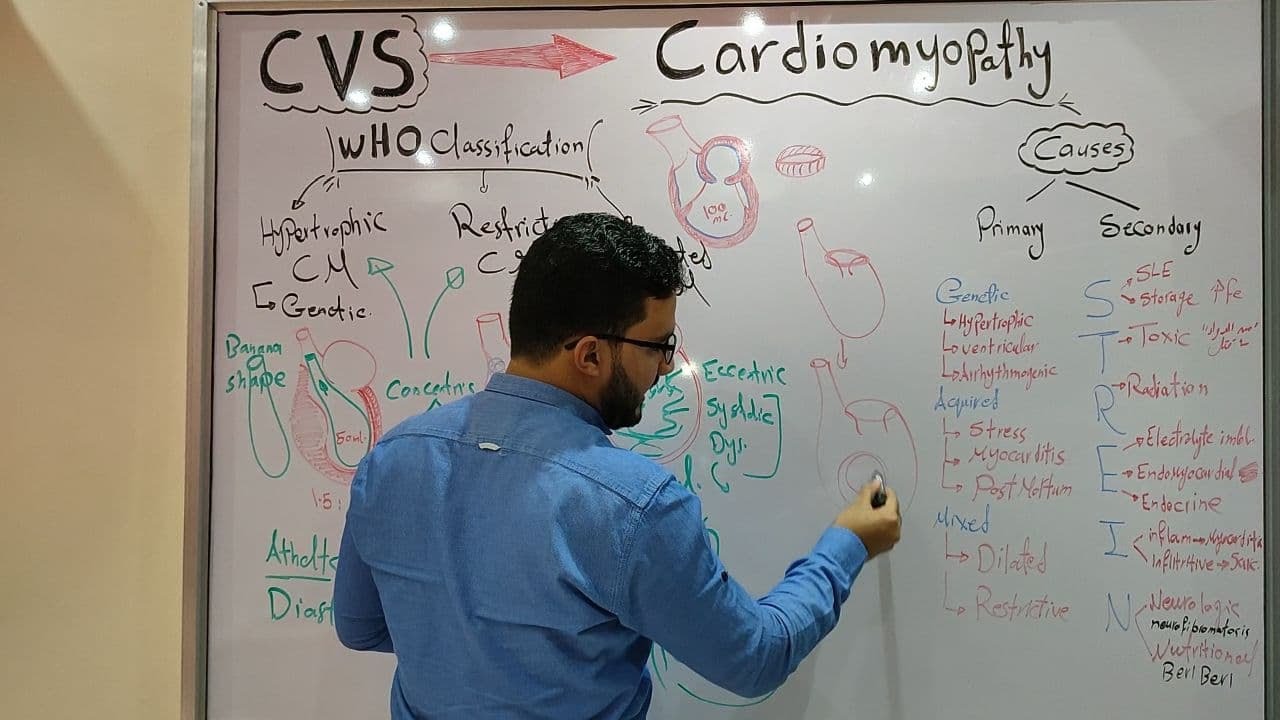 CVS
Cardiomyopathy
WHO Classification
Hypertrophic
CM
Genetic.
Restrict
Banana
shape
50ml.
1.5:
Concentri
Eccentric
Systolic
Dys.
Diast
100
mL.
Causes
Primary
Secondary
Genetic
Hypertrophic
ventricular
Arrhythmogenic
Acquired
Stress
Myocarditis
Post Moltum
Mixed
Dilated
Restrictive
S
SLE
Storage ↑fe
T
Toxic
R
Radiation
E
Electrolyte imbl.
Endomyocardial
Endocrine
I
inflam → Myocardit
inflitritive → Sarc.
N
Neurologic
neurofibromatosis
Nutritional
BeriBeri